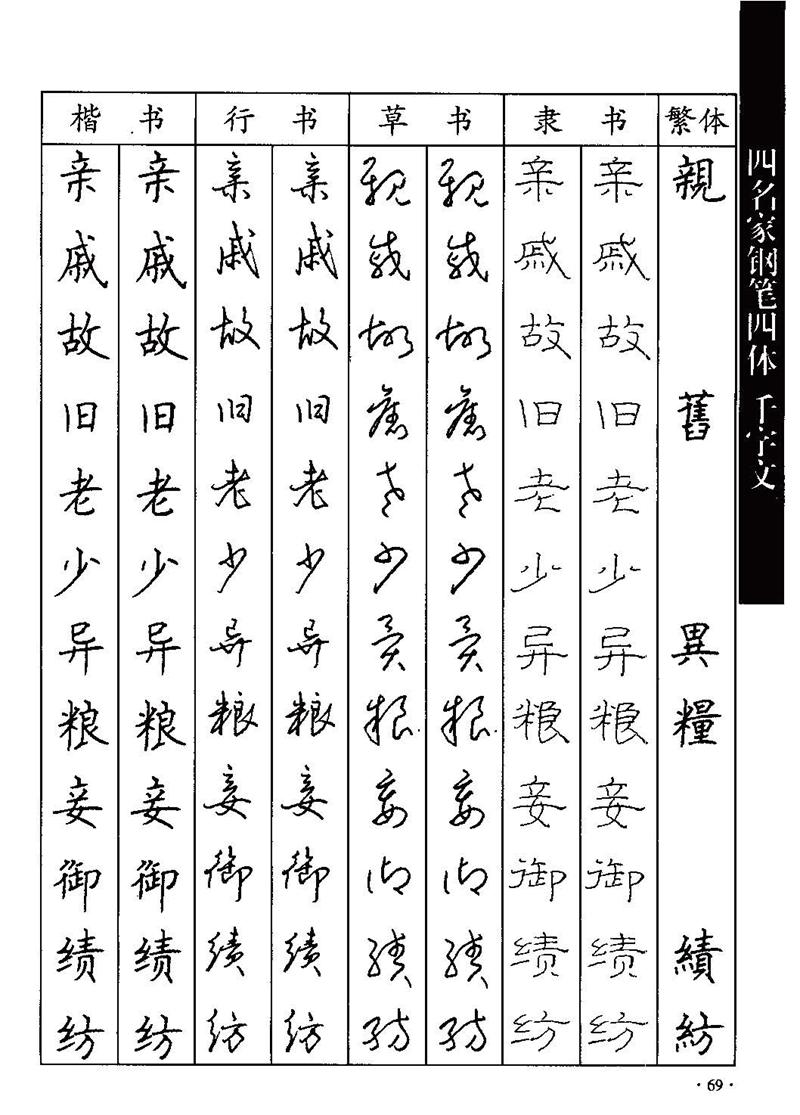 楷书 行书 草书 隶书 繁体
亲 亲 亲 亲 親 親 亲 亲 親
戚 戚 戚 戚 戚 戚 戚 戚
故 故 故 故 故 故 故 故
旧 旧 旧 旧 舊 舊 旧 旧 舊
老 老 老 老 老 老 老 老
少 少 少 少 少 少 少 少
异 异 异 异 異 異 异 异 異
粮 粮 粮 粮 粮 粮 粮 粮 糧
妾 妾 妾 妾 妾 妾 妾 妾
御 御 御 御 御 御 御 御
绩 绩 绩 绩 績 績 绩 绩 績
纺 纺 纺 纺 紡 紡 纺 纺 紡
四名家钢笔四体 千字文
·69·